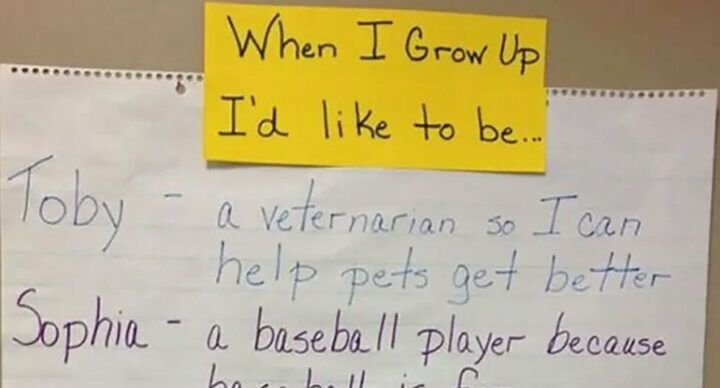 When I Grow Up
I'd like to be...
Toby - a veternarian so I can
help pets get better
Sophia - a baseball player because